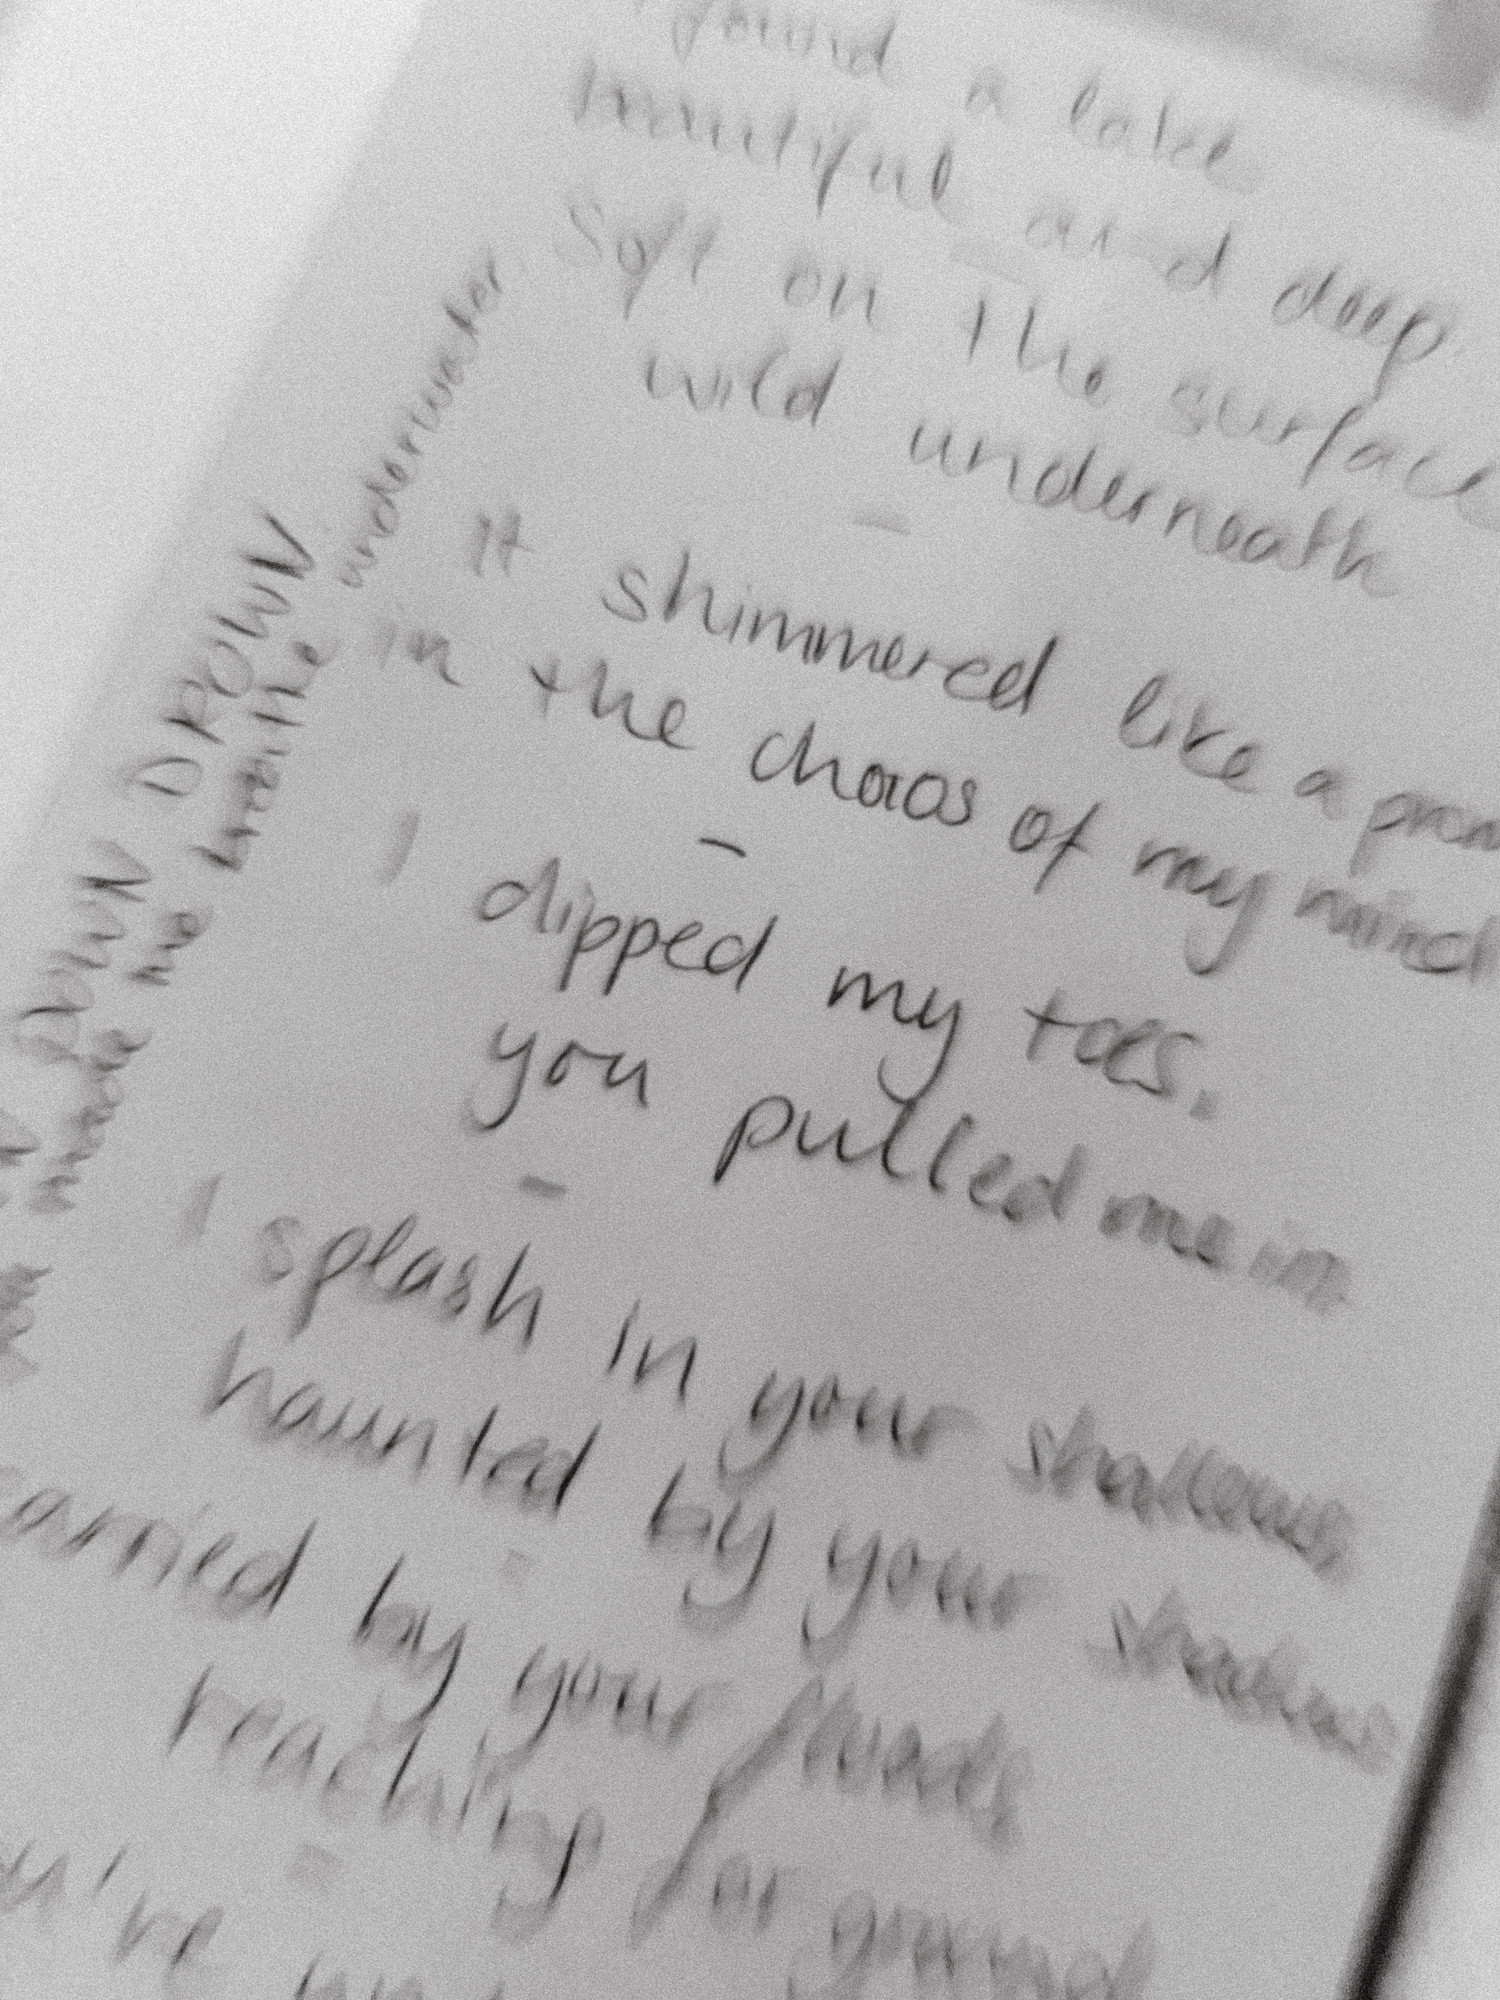 found a lake
beautiful and deep.
Soft on the surface
wild underneath
-
It shimmered like a prom
in the chaos of my mind
-
I dipped my toes.
you pulled me in
-
I splash in your shallows,
haunted by your shadows
arried by your floods
reaching for ground
-
ou're
DROWN DROWN
made me breathe underwater